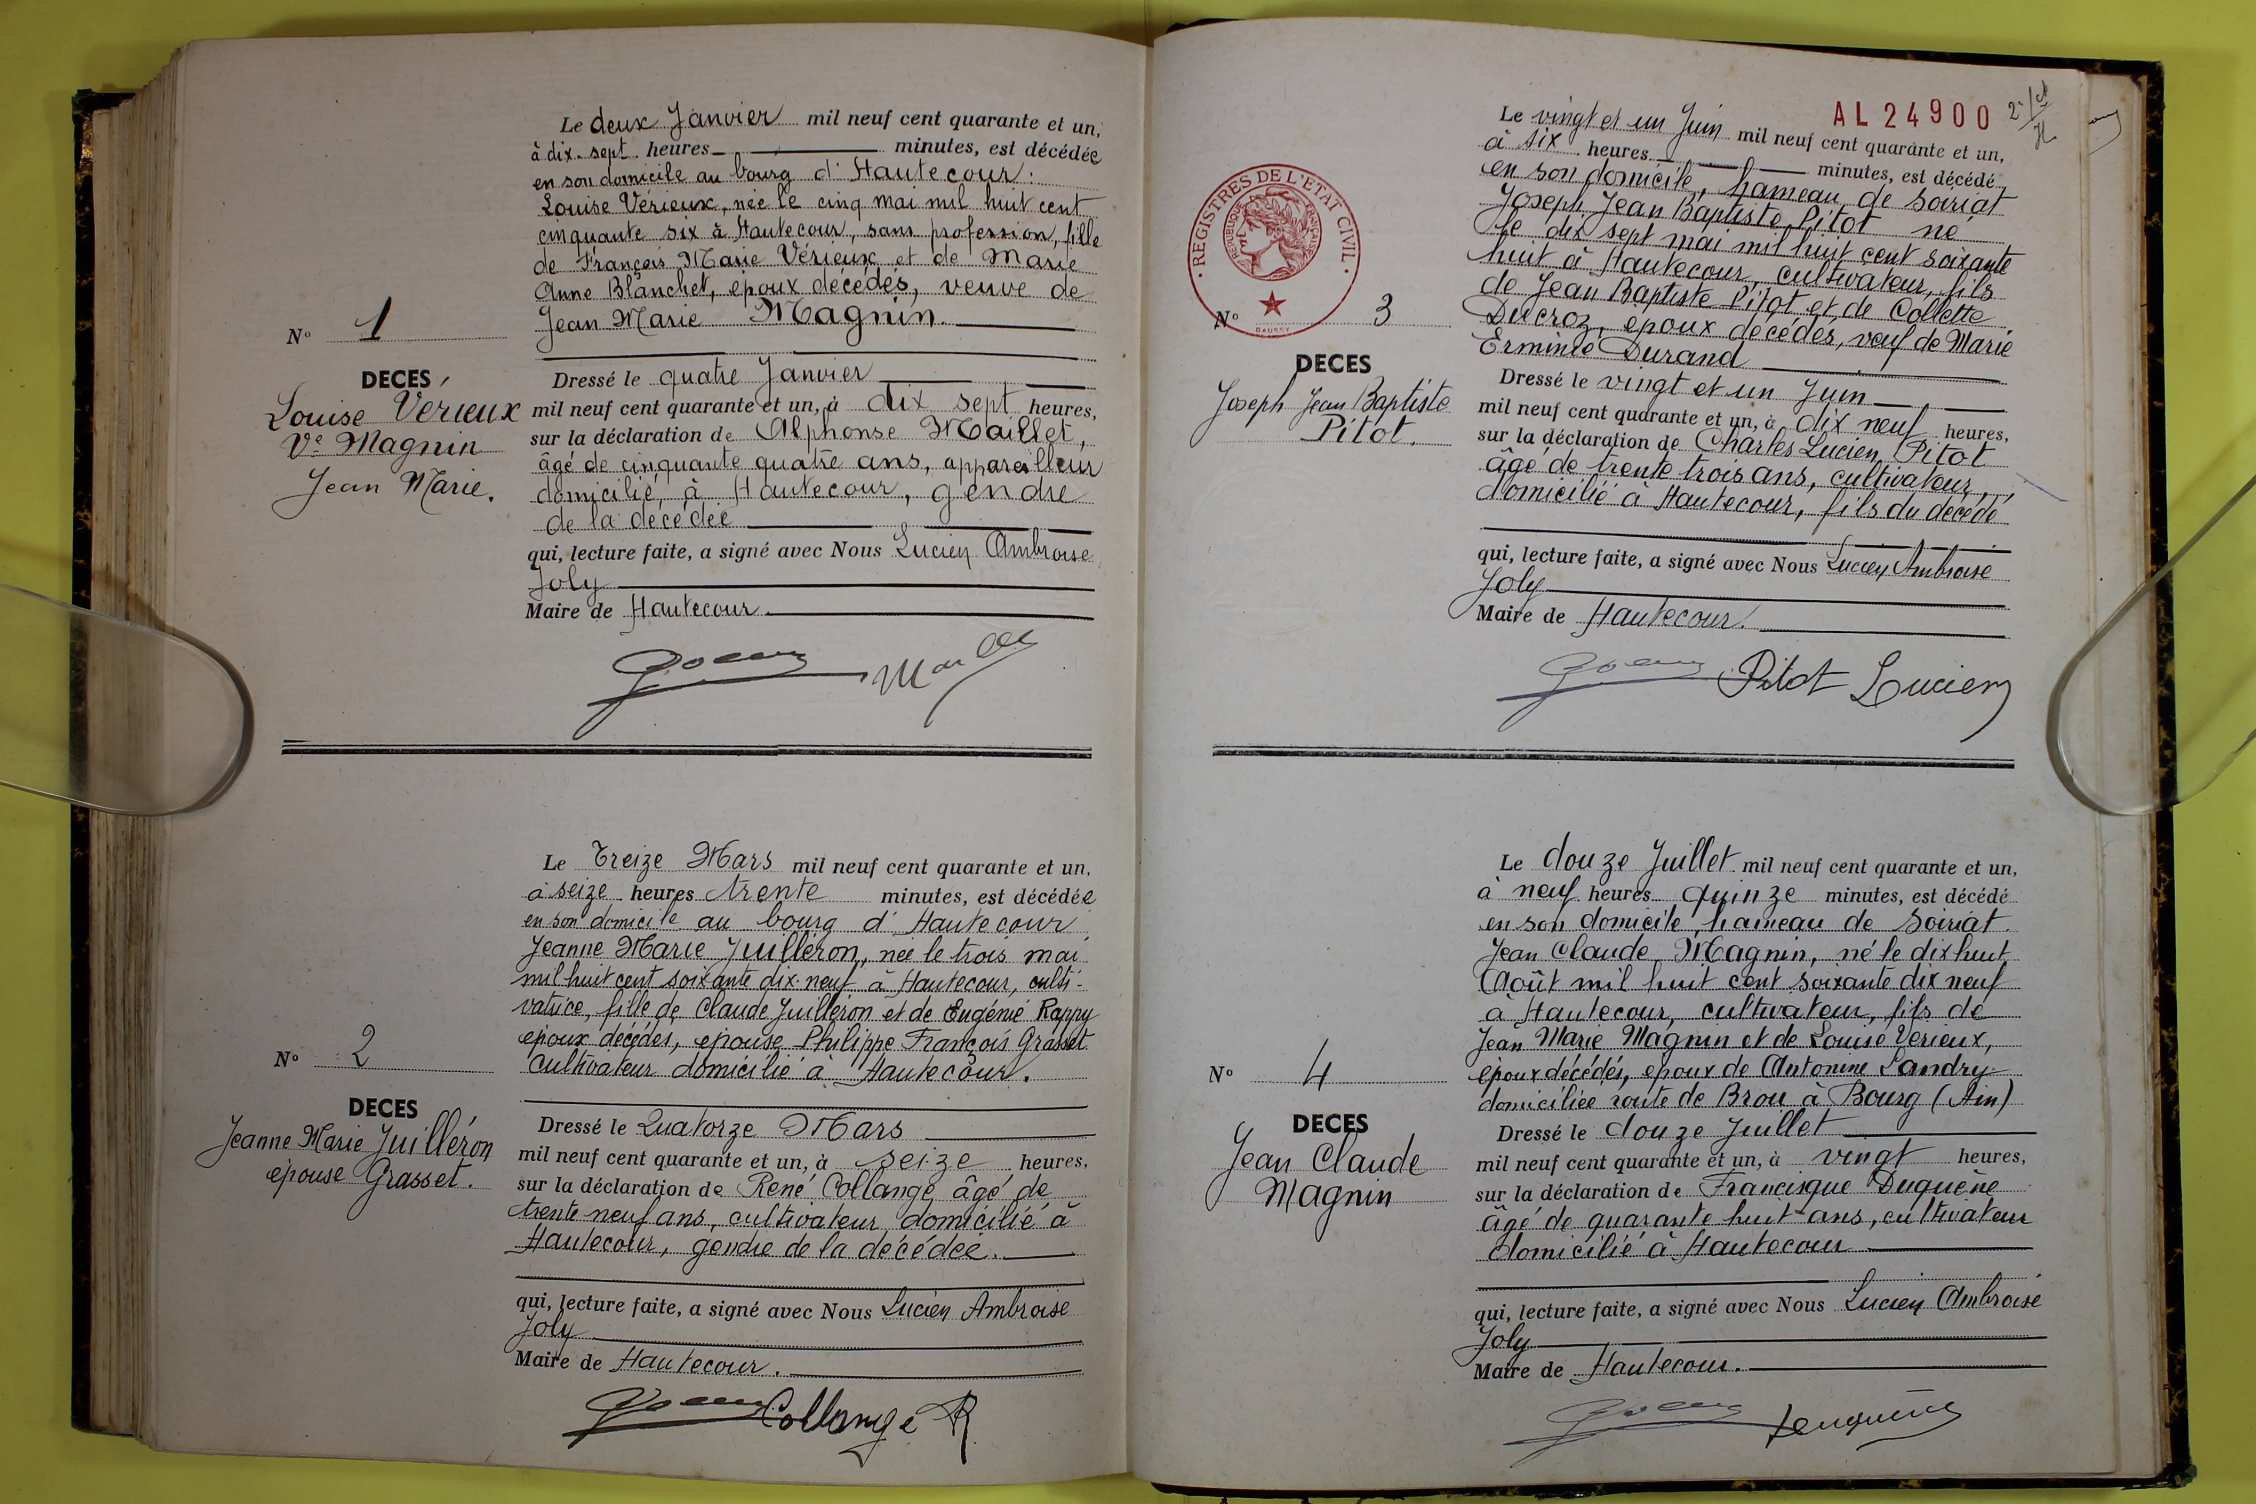 Le deux Janvier mil neuf cent quarante et un,
à dix-sept heures minutes, est décédée
en son domicile au bourg d'Hautecour:
Louise Vérieux, née le cinq mai mil huit cent
cinquante six à Hautecour, sans profession, fille
de François Marie Vérieux et de Marie
Anne Blanchet, époux décédés, veuve de
Jean Marie Magnin.
N° 1
DECES
Louise Vérieux
Ve Magnin
Jean Marie.
Dressé le quatre Janvier
mil neuf cent quarante et un, à dix sept heures,
sur la déclaration de Alphonse Maillet,
âgé de cinquante quatre ans, appareilleur
domicilié à Hautecour, gendre
de la décédée
qui, lecture faite, a signé avec Nous Lucien Ambroise
Joly
Maire de Hautecour.
Le Treize Mars mil neuf cent quarante et un,
à seize heures trente minutes, est décédée
en son domicile au bourg d'Hautecour
Jeanne Marie Juilléron, née le trois mai
mil huit cent soixante dix-neuf à Hautecour, culti-
vatrice, fille de Claude Juilléron et de Eugénie
époux décédés, épouse Philippe François Grasset
cultivateur domicilié à Hautecour.
N° 2
DECES
Jeanne Marie Juilléron
épouse Grasset.
Dressé le Quatorze Mars
mil neuf cent quarante et un, à seize heures,
sur la déclaration de René Collange, âgé de
trente neuf ans, cultivateur domicilié à
Hautecour, gendre de la décédée.
qui, lecture faite, a signé avec Nous Lucien Ambroise
Joly
Maire de Hautecour.
Collange R
AL 24900
Le vingt et un Juin mil neuf cent quarante et un,
à six heures minutes, est décédé
en son domicile, hameau de Soiriat
Joseph Jean Baptiste Pitot né
le dix sept mai mil huit cent soixante
huit à Hautecour, cultivateur, fils
de Jean Baptiste Pitot et de Collette
Ducroz, époux décédés, veuf de Marie
Erminie Durand
REGISTRES DE L'ETAT CIVIL
REPUBLIQUE FRANÇAISE
N° 3
DECES
Joseph Jean Baptiste
Pitot.
Dressé le vingt et un Juin
mil neuf cent quarante et un, à dix neuf heures,
sur la déclaration de Charles Lucien Pitot
âgé de trente trois ans, cultivateur,
domicilié à Hautecour, fils du décédé
qui, lecture faite, a signé avec Nous Lucien Ambroise
Joly
Maire de Hautecour.
Pitot Lucien
Le douze Juillet mil neuf cent quarante et un,
à neuf heures quinze minutes, est décédé
en son domicile, hameau de Soiriat.
Jean Claude Magnin, né le dix huit
Août mil huit cent soixante dix neuf
à Hautecour, cultivateur, fils de
Jean Marie Magnin et de Louise Vérieux,
époux décédés, époux de Antonine Landry
domiciliée route de Brou à Bourg (Ain)
N° 4
DECES
Jean Claude
Magnin
Dressé le douze Juillet
mil neuf cent quarante et un, à vingt heures,
sur la déclaration de Francisque Duquène
âgé de quarante huit ans, cultivateur
domicilié à Hautecour
qui, lecture faite, a signé avec Nous Lucien Ambroise
Joly
Maire de Hautecour.